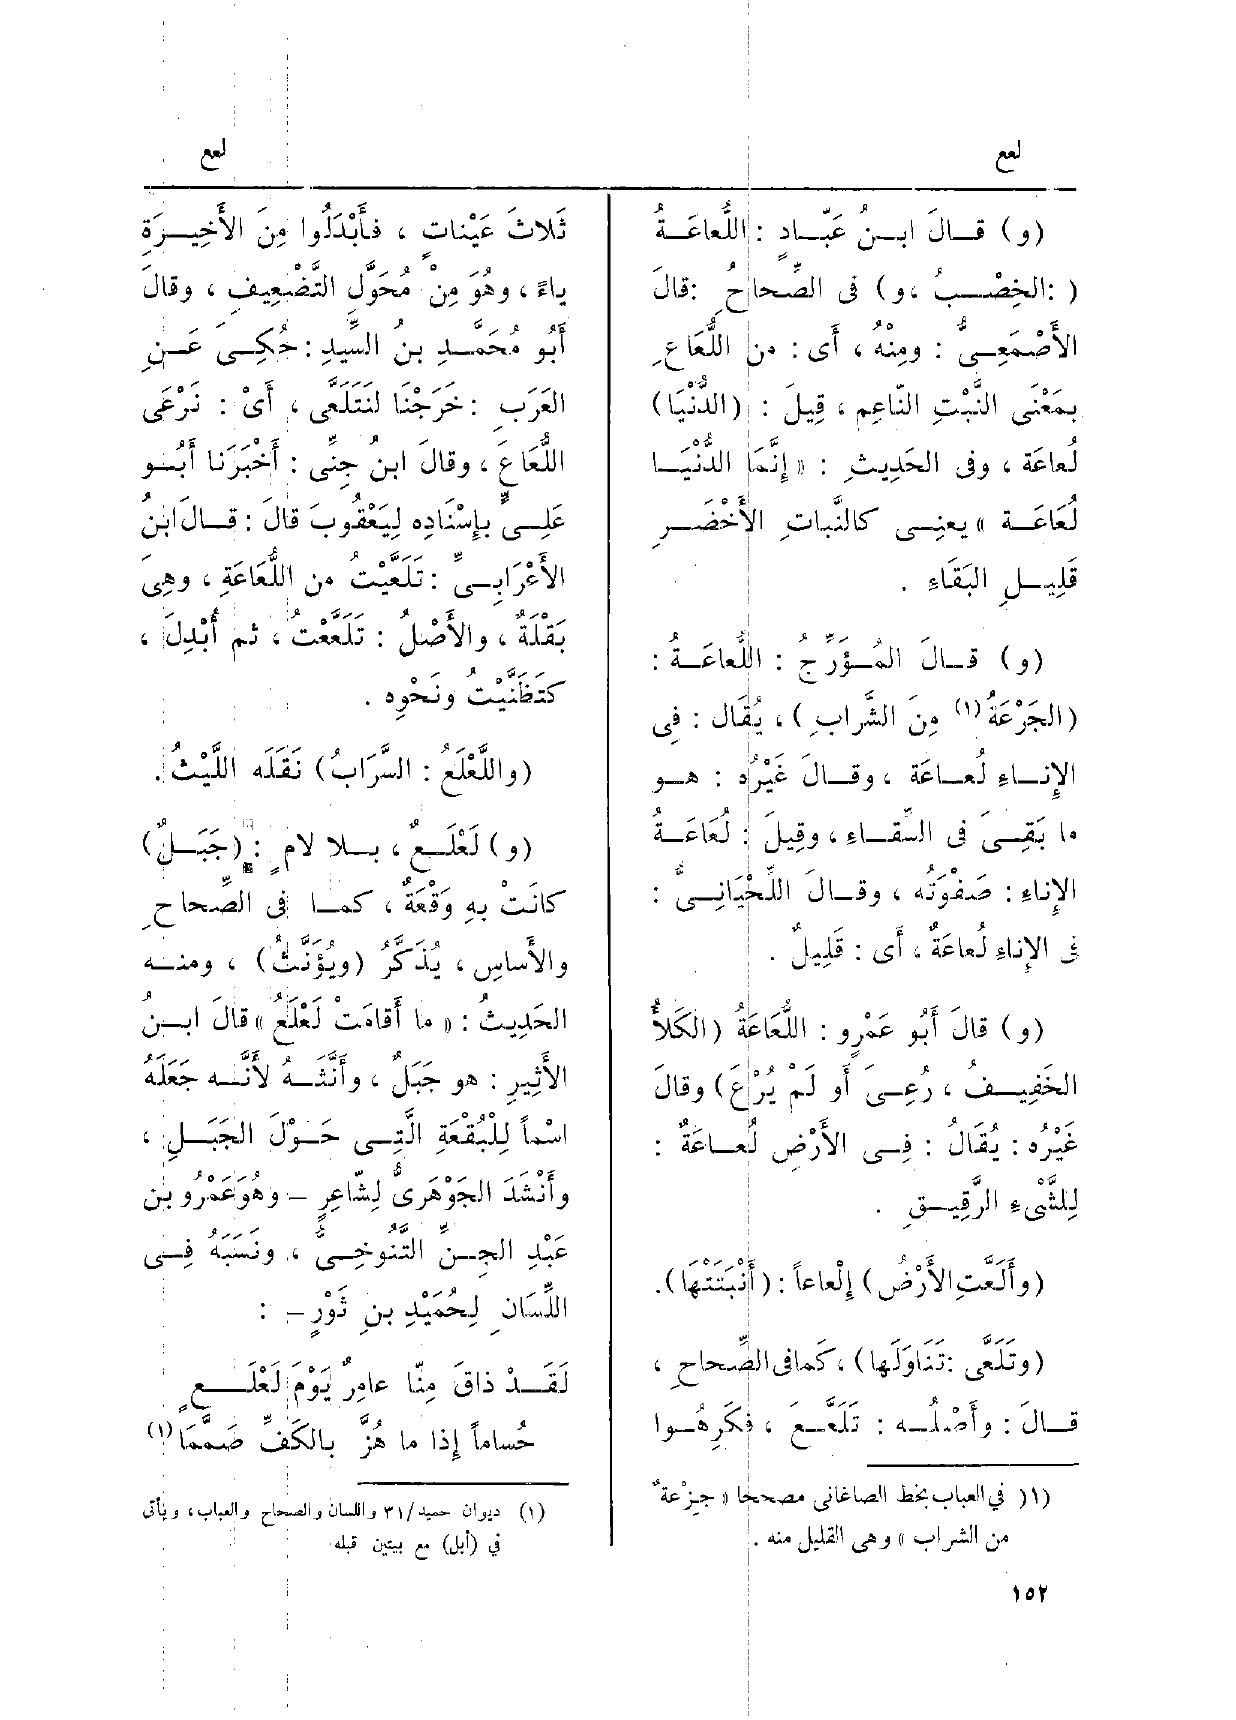 لعع
لعع
(و) قـالَ ابـنُ عَبّـادٍ : اللُّعاعَـةُ
( :الخِصْـبُ ،و) فى الصِّحاحِ :قالَ
الأَصْمَعِـىُّ : ومِنْهُ ، أَى : من اللُّعَاعِ
بمَعْنَى النَّبْتِ النّاعِمِ ، قِيلَ : (الدُّنْيَا)
لُعاعَة ، وفى الحَدِيثِ : « إِنَّمَا الدُّنْيَـا
لُعَاعَـة » يعنِـى كالنَّباتِ الأَخْضَـرِ
قَلِيـلِ البَقَاءِ .
(و) قـالَ المُـؤَرِّجُ : اللُّعاعَـةُ :
(الجَرْعَةُ(١) مِنَ الشَّرابِ) ، يُقَال : فى
الإِنـاءِ لُعـاعَة ، وقـالَ غَيْرُه : هـو
ما بَقِـىَ فى السِّقـاءِ ، وقِيلَ : لُعَاعَـةُ
الإِناءِ : صَفْوَتُه ، وقـالَ اللِّحْيَانِـىُّ :
فى الإِناءِ لُعاعَةٌ ، أَى : قَلِيلٌ .
(و) قالَ أَبُو عَمْرٍو : اللُّعَاعَةُ (الكَلأُ
الخَفِيـفُ ، رُعِـىَ أَو لَمْ يُرْعَ) وقالَ
غَيْرُه : يُقَالُ : فِـى الأَرْضِ لُعـاعَةٌ :
لِلشَّىْءِ الرَّقِيـقِ .
(وأَلَعَّتِ الأَرْضُ) إِلْعاعاً : (أَنْبَتَتْهَا).
(وتَلَعَّى :تَنَاوَلَها) ، كَمافى الصِّحاحِ ،
قـالَ : وأَصْلُـه : تَلَعَّـعَ ، فكَرِهُـوا
(١) في العباب بخط الصاغانى مصححا « جِزْعةٌ
من الشراب » وهى القليل منه .
ثَلاثَ عَيْناتٍ ، فأَبْدَلُوا مِنَ الأَخِيـرَةِ
ياءً ، وهُوَ مِنْ مُحَوَّلِ التَّضْعِيفِ ، وقالَ
أَبُو مُحَمَّـدِ بنُ السِّيدِ : حُكِـىَ عَـنِ
العَرَبِ : خَرَجْنَا لنَتَلَعَّى ، أَىْ : نَرْعَى
اللُّعَاعَ ، وقالَ ابنُ جِنِّى : أَخْبَرَنا أَبُـو
عَلِـىٍّ بإِسْنَادِه لِيَعْقُوبَ قالَ : قـالَ ابنُ
الأَعْرَابِـىِّ : تَلَعَّيْتُ من اللُّعَاعَةِ ، وهِىَ
بَقْلَةٌ ، والأَصْلُ : تَلَعَّعْتُ ، ثم أُبْدِلَ ،
كتَظَنَّيْتُ ونَحْوِه .
(واللَّعْلَعُ : السَّرَابُ) نَقَلَه اللَّيْثُ .
(و) لَعْلَـعٌ ، بـلا لامٍ : (جَبَـلٌ)
كانَتْ بهِ وَقْعَةٌ ، كمـا فى الصِّحاحِ
والأَساسِ ، يُذَكَّرُ (ويُؤَنَّثُ) ، ومنـه
الحَدِيثُ : « ما أَقامَتْ لَعْلَعُ » قالَ ابـنُ
الأَثِيرِ : هو جَبَلٌ ، وأَنَّثَـهُ لأَنَّـه جَعَلَهُ
اسْماً لِلْبُقْعَةِ الَّتِـى حَـوْلَ الجَبَـلِ ،
وأَنْشَدَ الجَوْهَرِىُّ لِشَاعِرٍ – وهُوَ عَمْرُو بن
عَبْدِ الجِـنِّ التَّنُوخِـىُّ ، ونَسَبَهُ فِـى
اللِّسَانِ لِحُمَيْدِ بنِ ثَوْرٍ – :
لَقَـدْ ذاقَ مِنّا عامِرٌ يَوْمَ لَعْلَـعٍ
حُساماً إِذا ما هُزَّ بالكَفِّ صَمَّمَا(١)
(١) ديوان حميد/٣١ واللسان والصحاح والعباب ، ويأتى
في (أبل) مع بيتين قبله
١٥٢